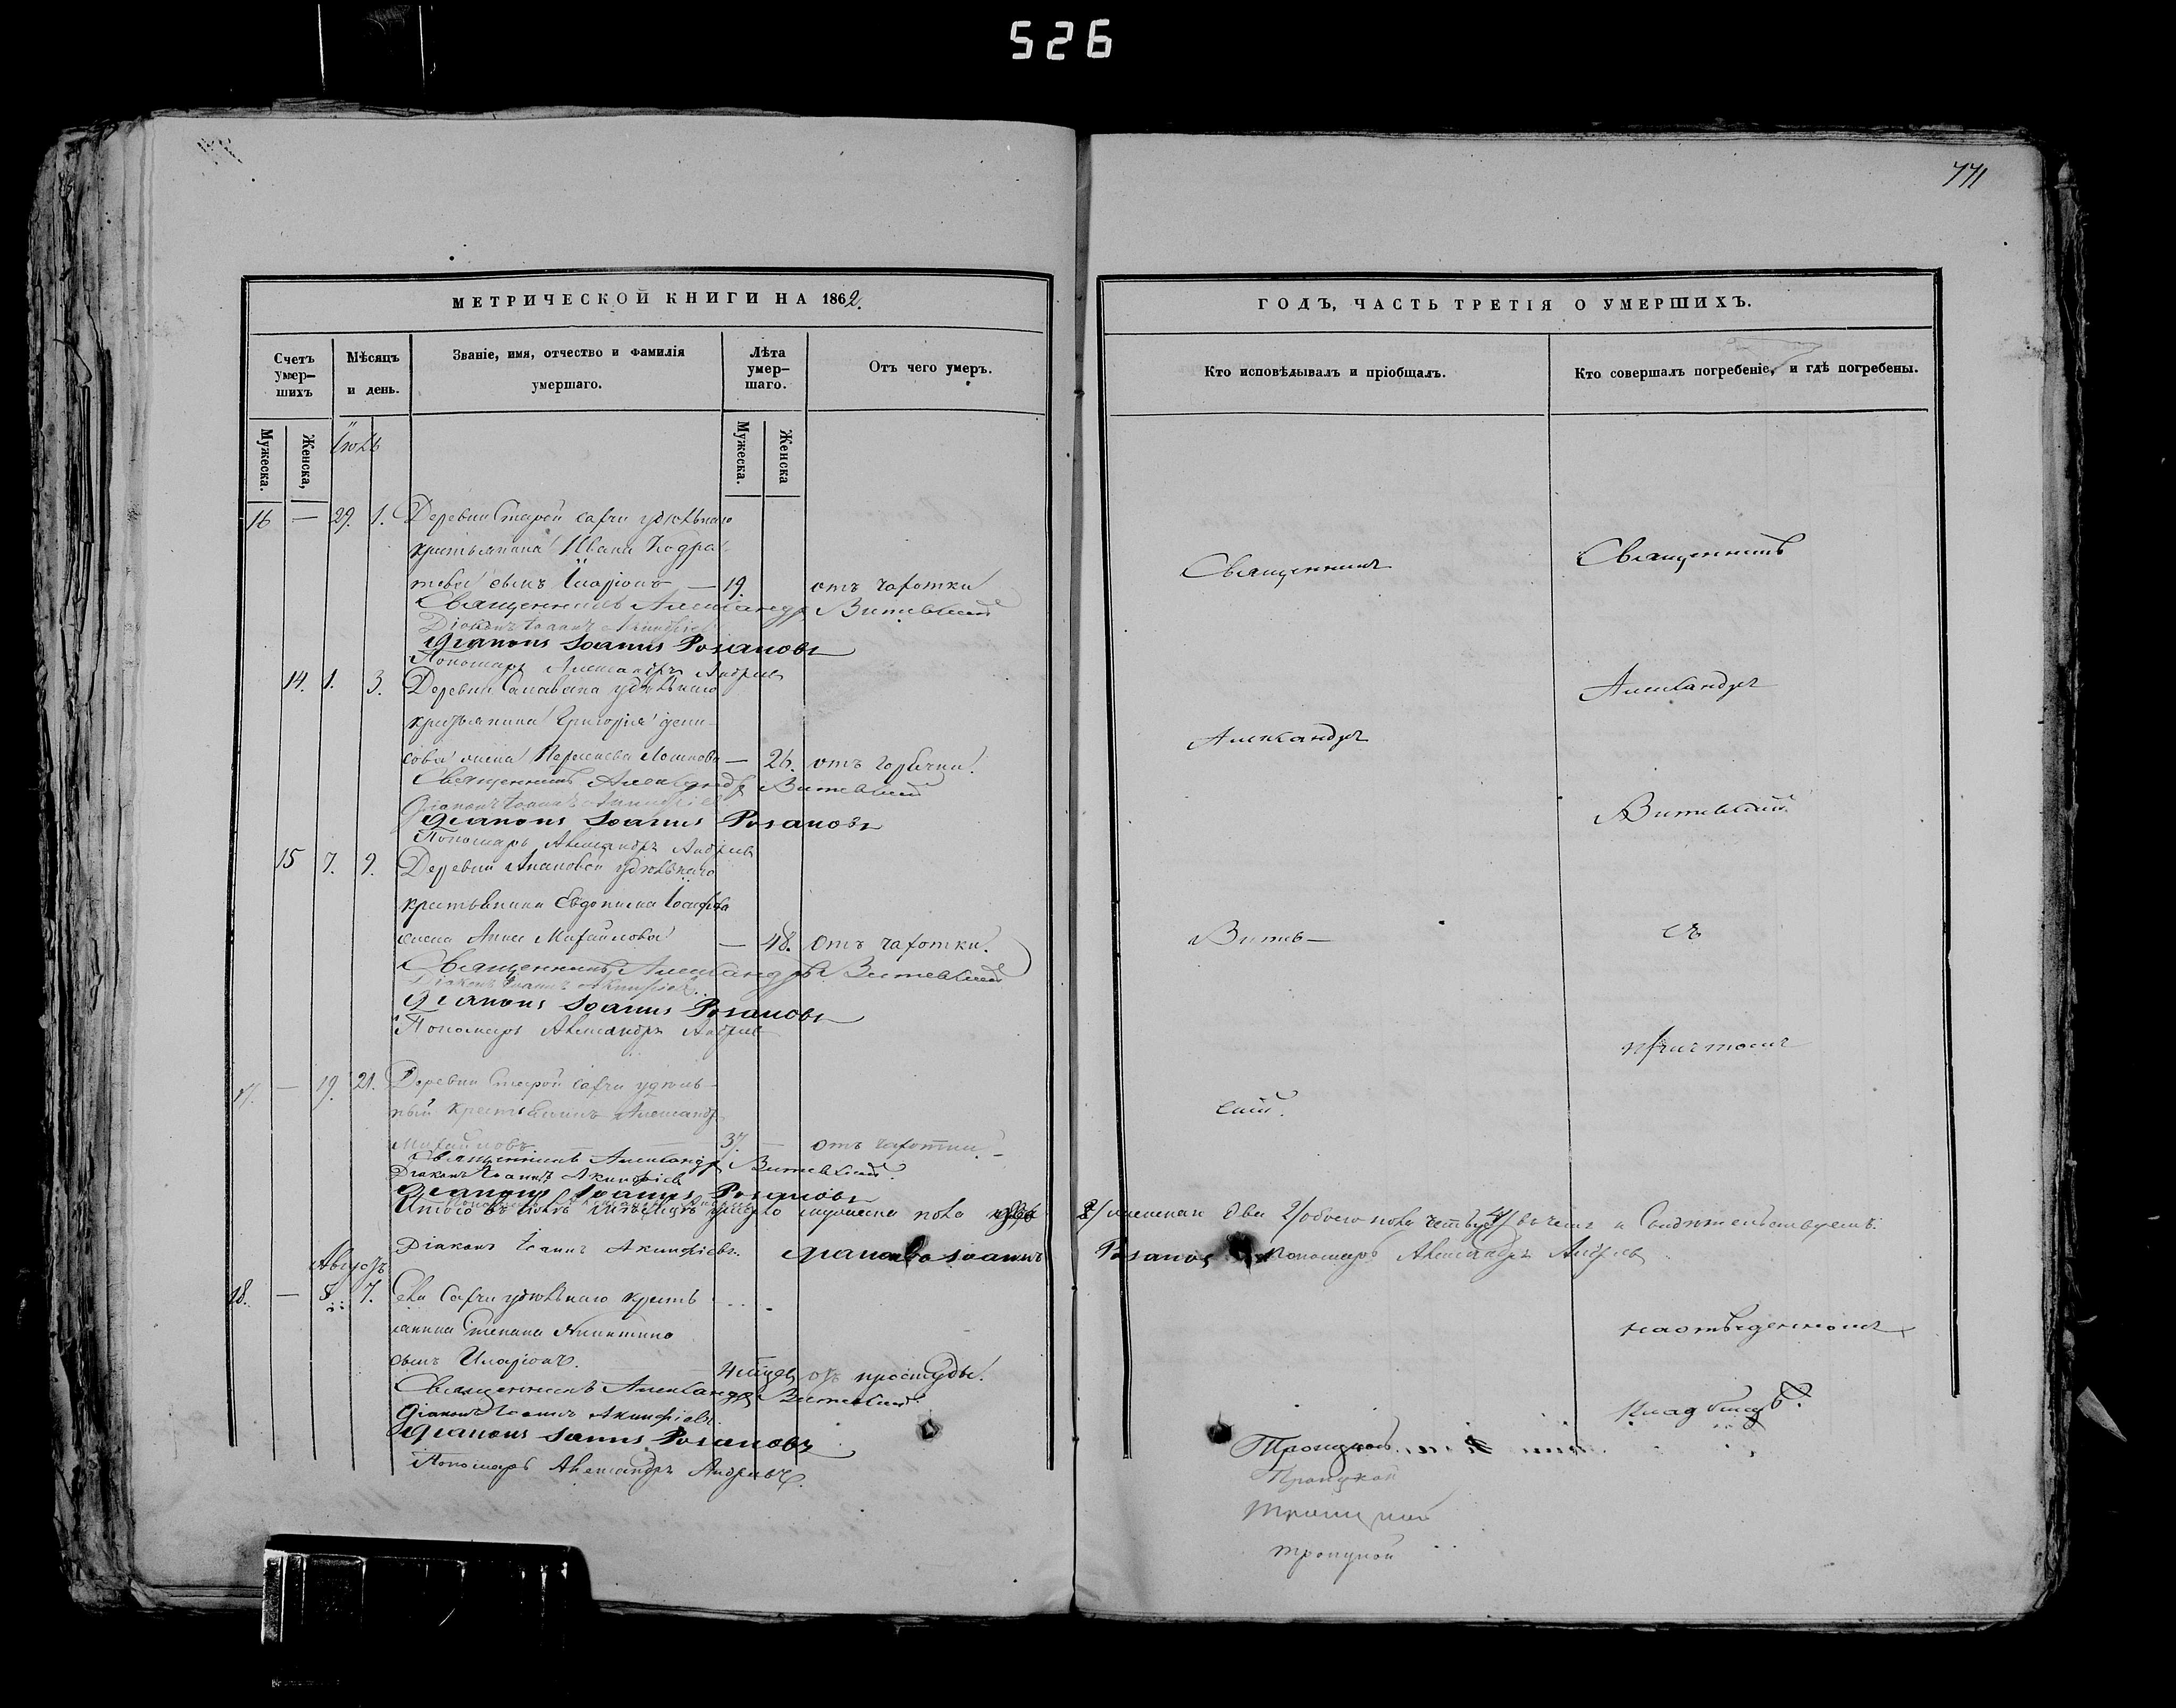 526
771
МЕТРИЧЕСКОЙ КНИГИ НА 1862.
Счетъ умер-шихъ
Мѣсяцъ и день.
Званіе, имя, отчество и фамилія умершаго.
Лѣта умер-шаго.
Отъ чего умеръ.
Мужеска.
Женска,
Мужеска.
Женска
Іюль
16 — 29. 1. Деревни Старой Сахчи удѣльнаго
крестьянина Ивана Кодра-
това сынъ Иларіонъ — 19. отъ чахотки
Священникъ Александръ Витевскій
Діаконъ Іоаннъ Акинфіевъ
Діаконъ Іоаннъ Розановъ
Пономарь Александръ Андреевъ
14. 1. 3. Деревни удѣльнаго
крестьянина Григорія Дени-
сова жена — 26. отъ горячки.
Священникъ Александръ Витевскій
Діаконъ Іоаннъ Акинфіевъ
Діаконъ Іоаннъ Розановъ
Пономарь Александръ Андреевъ
15 7. 9. Деревни удѣльнаго
крестьянина Евдокима Іосифова
жена Анна Михайлова — 48. отъ чахотки.
Священникъ Александръ Витевскій
Діаконъ Іоаннъ Акинфіевъ.
Діаконъ Іоаннъ Розановъ
Пономарь Александръ Андреевъ
17. — 19. 21. Деревни Старой Сахчи удѣль-
ный крестьянинъ Александръ
Михайловъ — 37. — отъ чахотки. —
Священникъ Александръ Витевскій.
Діаконъ Іоаннъ Акинфіевъ
Діаконъ Іоаннъ Розановъ
Итого въ Іюлѣ мѣсяцѣ умерло мужеска пола два
Діаконъ Іоаннъ Акинфіевъ. Діаконъ Іоаннъ
Августъ
18. — 5. 7. Села Сахчи удѣльнаго кресть
янина Степана Никитина
сынъ Иларіонъ. 4 мѣсяц. отъ простуды.
Священникъ Александръ Витевскій.
Діаконъ Іоаннъ Акинфіевъ.
Діаконъ Іоаннъ Розановъ
Пономарь Александръ Андреевъ.
ГОДЪ, ЧАСТЬ ТРЕТІЯ О УМЕРШИХЪ.
Кто исповѣдывалъ и пріобщалъ.
Кто совершалъ погребеніе, и гдѣ погребены.
Священникъ
Александръ
Витев-
скій.
Священникъ
Александръ
Витевскій
съ
причтомъ
2/ женска два 2/ обоего пола четыре 4/ въ чемъ и свидѣтельствуемъ:
Розановъ Пономарь Александръ Андреевъ
на отведенномъ
кладбищѣ.
Троицкой
Троицкой
Троицкой
Троицкой